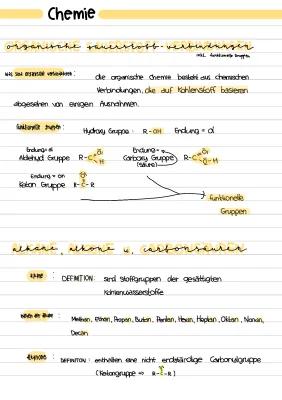 Chemie
organische sauerstoff-verbindungen
inkl. funktionelle Gruppen
was sind organische verbindungen: die organische Chemie besteht aus chemischen
Verbindungen, die auf Kohlenstoff basieren
abgesehen von einigen Ausnahmen.
funktionelle Gruppen: Hydroxy Gruppe: R-OH Endung = ol
Endung = al Endung =
Aldehyd Gruppe R-C Carboxy Gruppe R-C O-H
(säure)
Endung = on
Keton Gruppe R-C-R
funktionelle
Gruppen
alkane, alkone u. carbonsäuren
alkane: DEFINITION: sind stoffgruppen der gesättigten
Kohlenwasserstoffe
Reihen der Alkane: Methan, Ethan, Propan, Butan, Pentan, Hexan, Heptan, Oktan, Nonan,
Decan
alkanone: DEFINITION: enthalten eine nicht endständige Carbonylgruppe
(Ketongruppe => R-C-R)